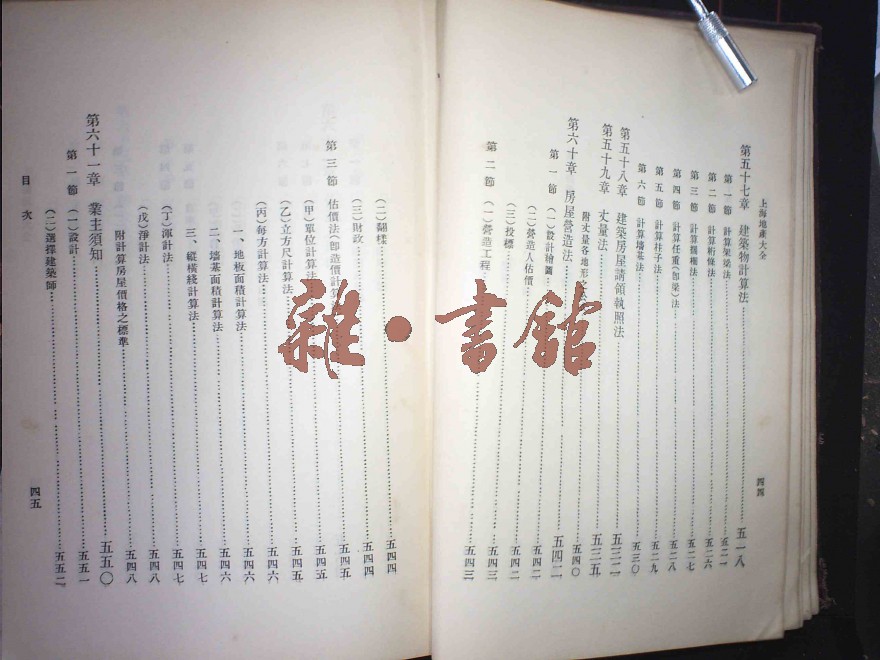 上海地產大全
四四
第五十七章 建築物計算法 五一八
第一節 計算架梁法 五二一
第二節 計算桁條法 五二六
第三節 計算擱柵法 五二七
第四節 計算任重(卽梁)法 五二八
第五節 計算柱子法 五二九
第六節 計算墻基法 五三〇
第五十八章 建築房屋請領執照法 五三二
第五十九章 丈量法 五三五
附丈量各地形 五四〇
第六十章 房屋營造法 五四二
第一節 (一)設計繪圖 五四二
(二)營造人估價 五四二
(三)投標 五四二
第二節 (一)營造工程 五四三
(二)翻樣 五四四
(三)財政 五四四
第三節 估價法(卽造價計算 五四五
(甲)單位計算法 五四五
(乙)立方尺計算法 五四五
(丙)每方計算法 五四六
一、地板面積計算法 五四六
二、墻基面積計算法 五四六
三、縱橫綫計算法 五四七
(丁)渾計法 五四七
(戊)淨計法 五四八
附計算房屋價格之標準 五四八
第六十一章 業主須知 五五〇
第一節 (一)設計 五五一
(二)選擇建築師 五五二
目次
四五
雜·書館